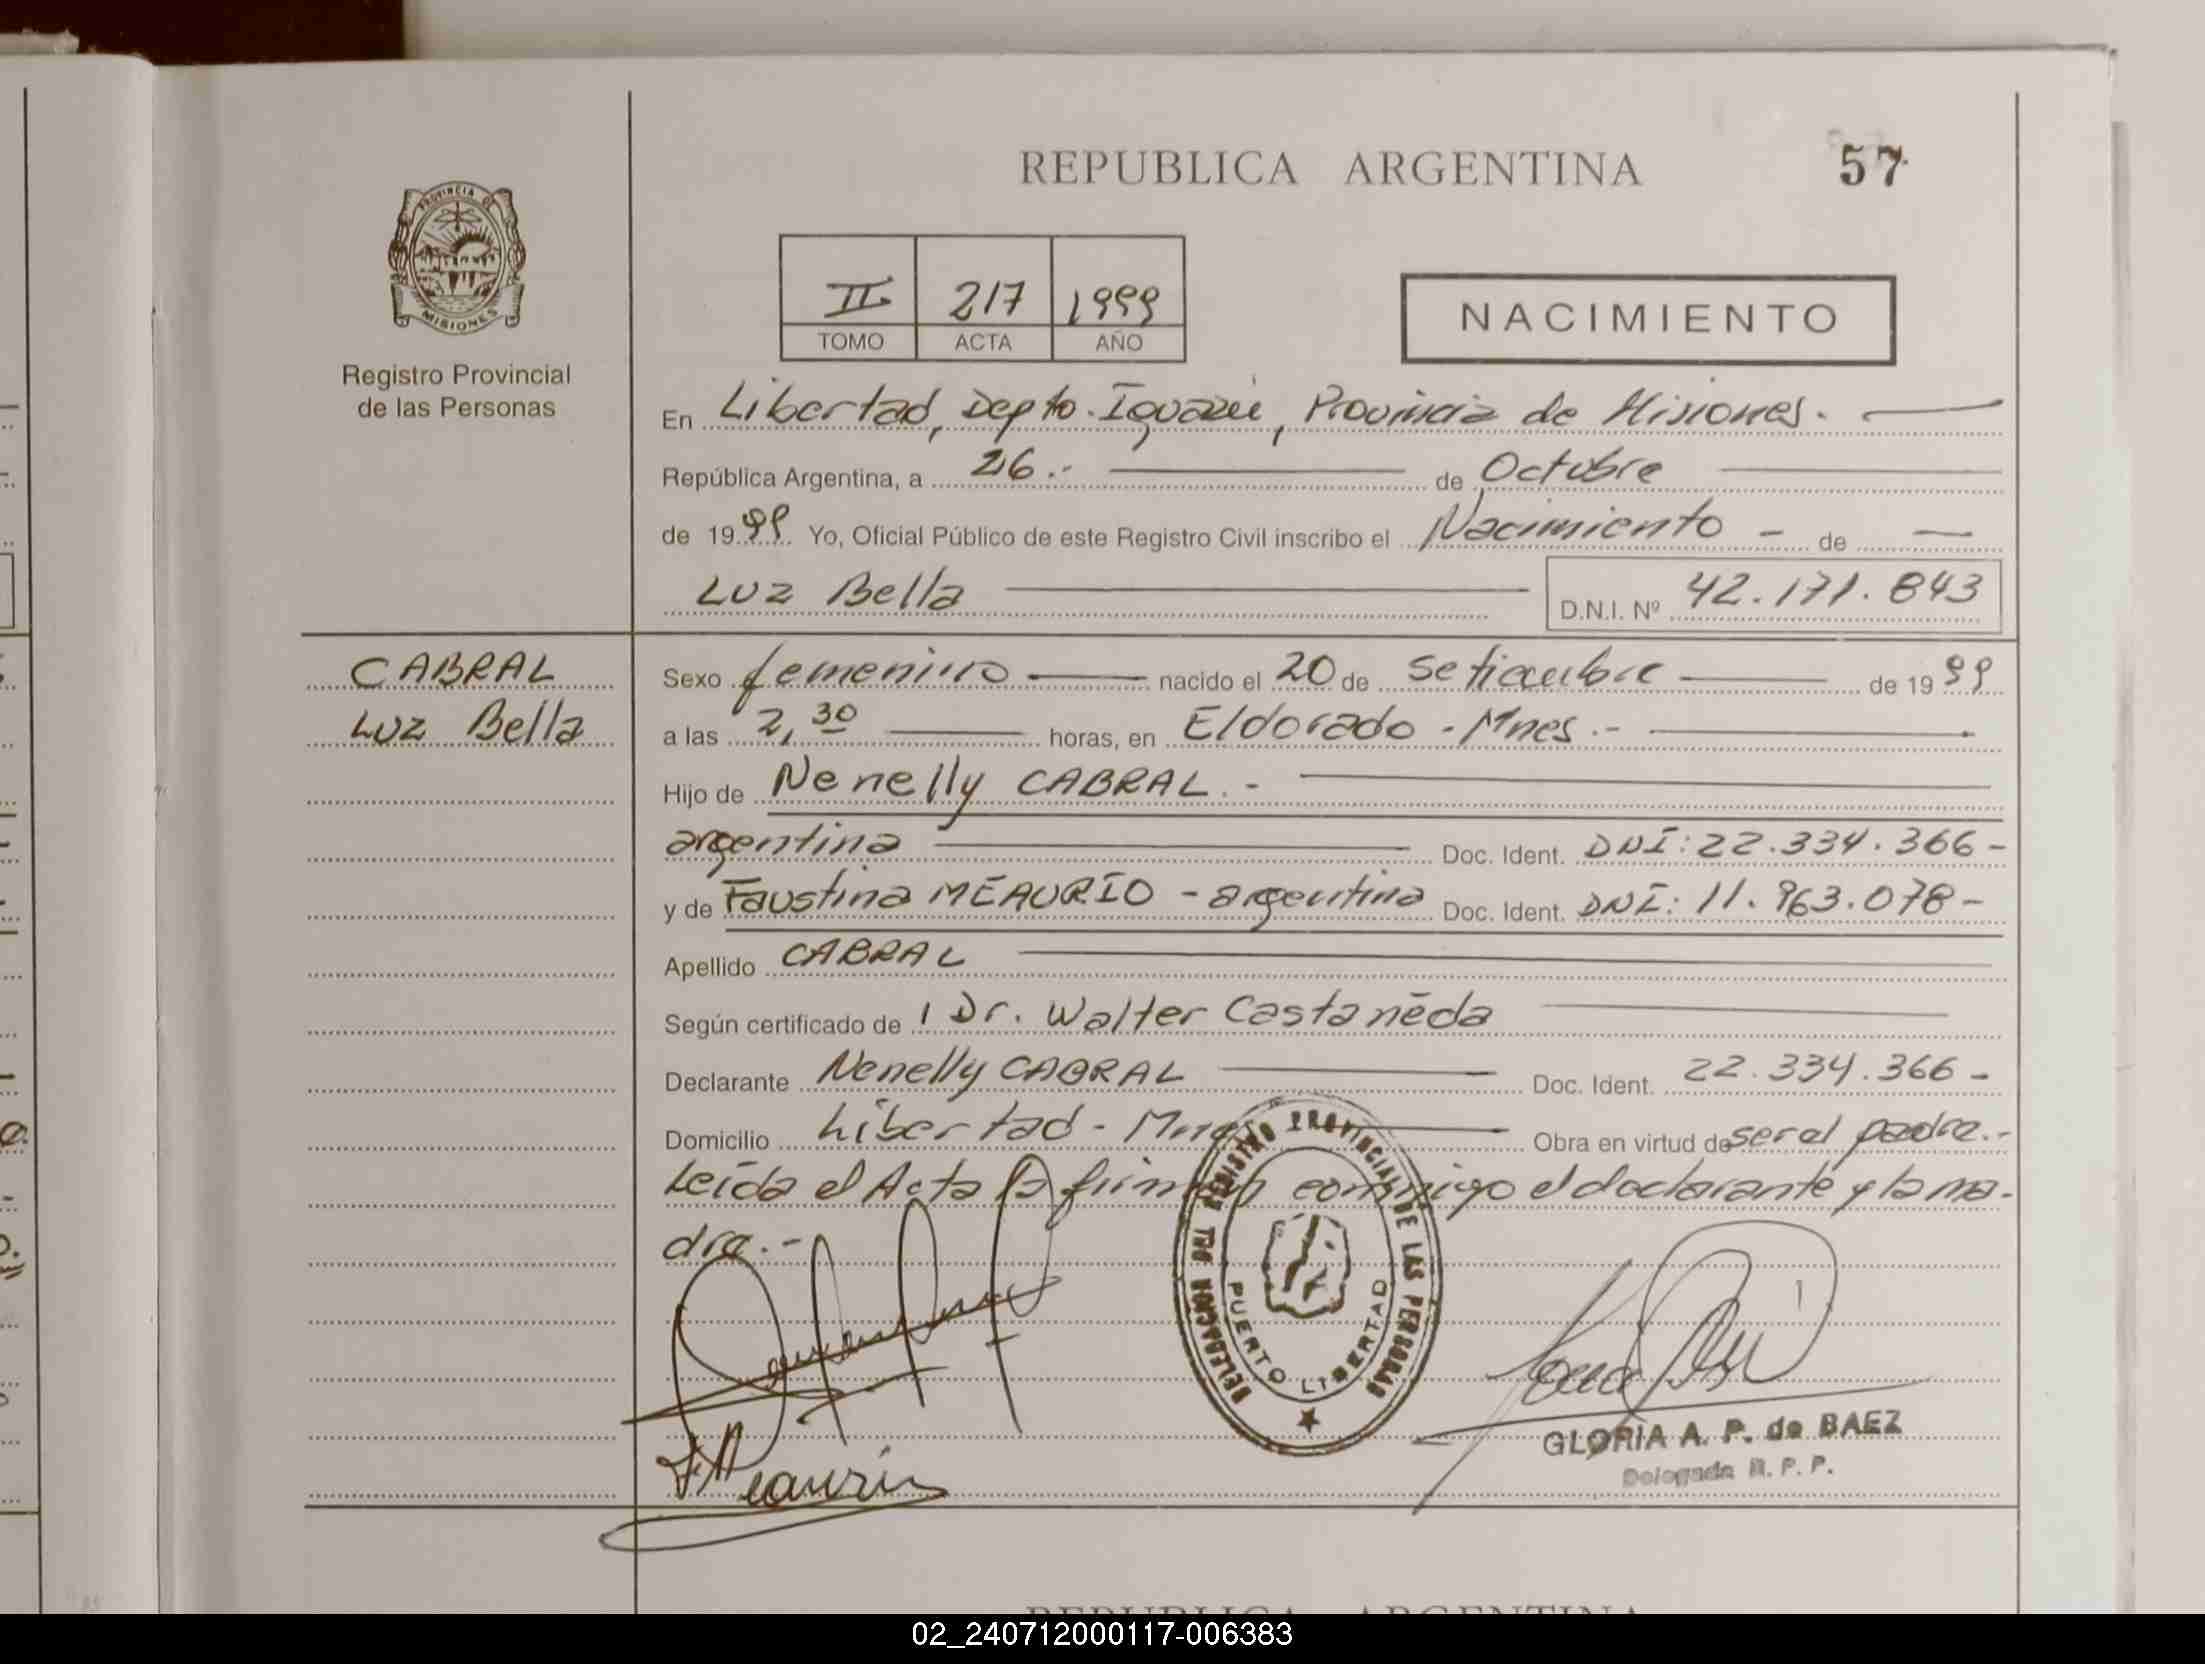 REPUBLICA ARGENTINA
57
PROVINCIA DE
MISIONES
Registro Provincial
de las Personas
II 217 1999
TOMO ACTA AÑO
NACIMIENTO
En Libertad, Depto. Iguazú, Provincia de Misiones.
República Argentina, a 26.- de Octubre
de 1999 Yo, Oficial Público de este Registro Civil inscribo el Nacimiento - de -
Luz Bella D.N.I. Nº 42.171.843
CABRAL
Luz Bella
Sexo femenino nacido el 20 de Setiembre de 1999
a las 2,30 horas, en Eldorado - Mnes.-
Hijo de Nenelly CABRAL.-
argentina Doc. Ident. DNI: 22.334.366-
y de Faustina MEAURIO - argentina Doc. Ident. DNI: 11.963.078-
Apellido CABRAL
Según certificado de Dr. Walter Castañeda
Declarante Nenelly CABRAL Doc. Ident. 22.334.366-
Domicilio Libertad - Mnes Obra en virtud de ser el padre.-
Leída el Acta la firman conmigo el declarante y la ma-
dre.-
DELEGACION DEL REGISTRO PROVINCIAL DE LAS PERSONAS
PUERTO LIBERTAD
F. Meaurio
GLORIA A. P. de BAEZ
Delegada R. P. P.
REPUBLICA ARGENTINA
02_240712000117-006383